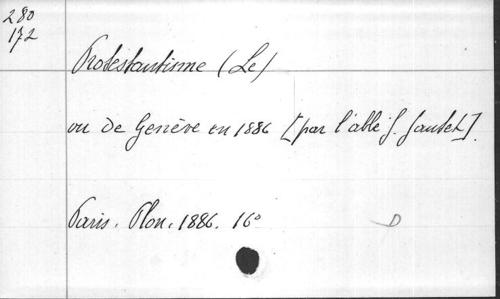 280
172
Protestantisme (Le)
ou de Genève en 1886 [par l'abbé J. Jaulet].
Paris. Plon. 1886. 16°
D